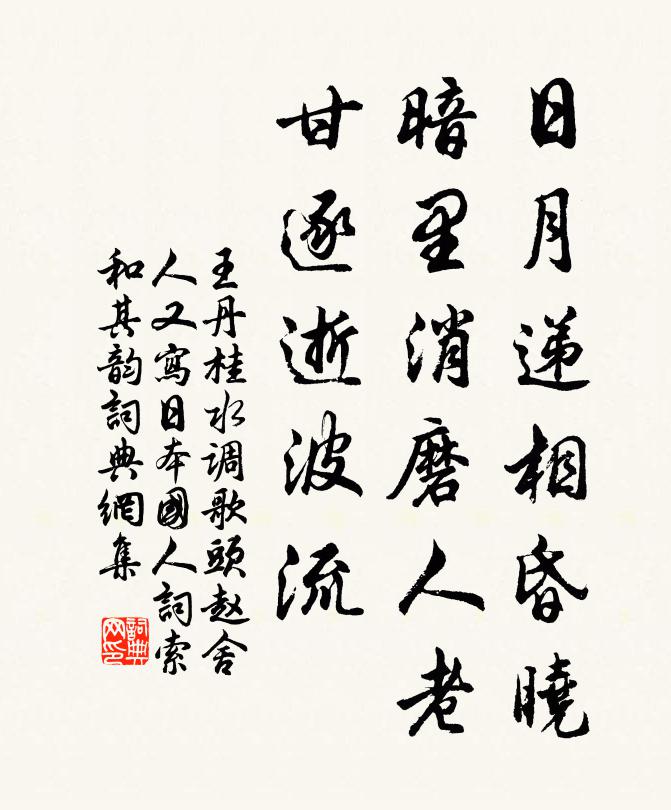 日月递相昏曉
暗里消磨人老
甘逐逝波流
王丹桂水调歌頭赵舍
人又寫日本國人詞索
和其韵詞典網集
詞典网印